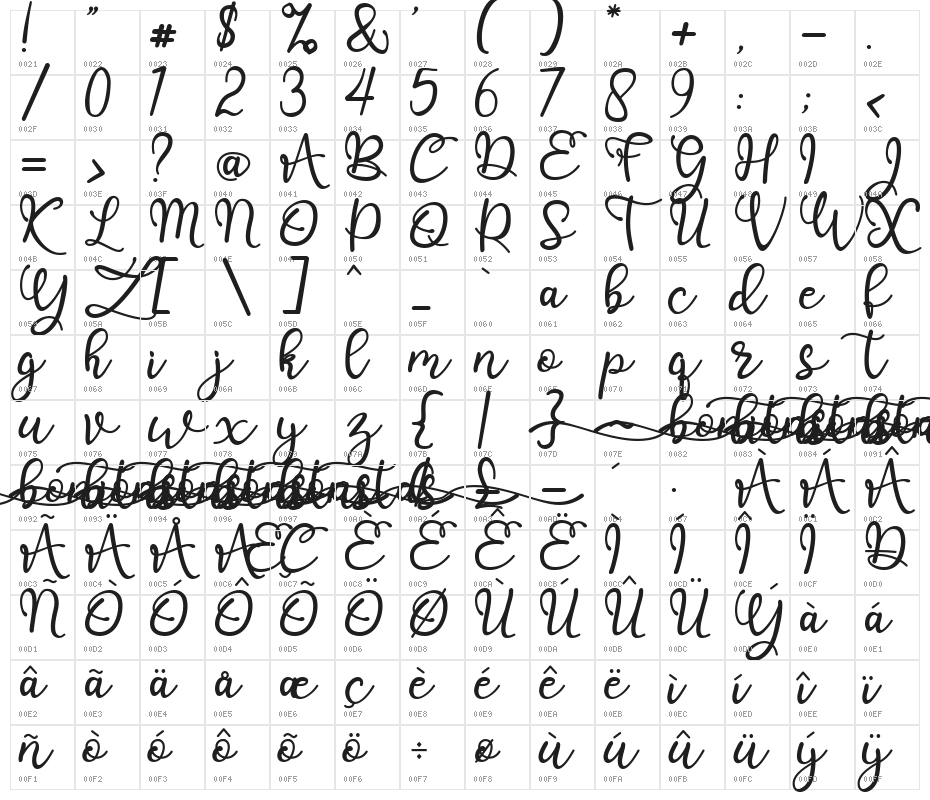 ! " # $ % & ' ( ) * + , - .
0021 0022 0023 0024 0025 0026 0027 0028 0029 002A 002B 002C 002D 002E
/ 0 1 2 3 4 5 6 7 8 9 : ; <
002F 0030 0031 0032 0033 0034 0035 0036 0037 0038 0039 003A 003B 003C
= > ? @ A B C D E F G H I J
003D 003E 003F 0040 0041 0042 0043 0044 0045 0046 0047 0048 0049 004A
K L M N O P Q R S T U V W X
004B 004C 004D 004E 004F 0050 0051 0052 0053 0054 0055 0056 0057 0058
Y Z [ \ ] ^ _ ` a b c d e f
0059 005A 005B 005C 005D 005E 005F 0060 0061 0062 0063 0064 0065 0066
g h i j k l m n o p q r s t
0067 0068 0069 006A 006B 006C 006D 006E 006F 0070 0071 0072 0073 0074
u v w x y z { | }
0075 0076 0077 0078 0079 007A 007B 007C 007D 007E 0082 0083 0084 0091
£ - ´ · À Á Â
0092 0093 0094 0096 0097 00A0 00A3 00C0 00C1 00C2
Ã Ä Å Æ Ç È É Ê Ë Ì Í Î Ï Ð
00C3 00C4 00C5 00C6 00C7 00C8 00C9 00CA 00CB 00CC 00CD 00CE 00CF 00D0
Ñ Ò Ó Ô Õ Ö Ø Ù Ú Û Ü Ý à á
00D1 00D2 00D3 00D4 00D5 00D6 00D8 00D9 00DA 00DB 00DC 00DD 00E0 00E1
â ã ä å æ ç è é ê ë ì í î ï
00E2 00E3 00E4 00E5 00E6 00E7 00E8 00E9 00EA 00EB 00EC 00ED 00EE 00EF
ñ ò ó ô õ ö ÷ ø ù ú û ü ý ÿ
00F1 00F2 00F3 00F4 00F5 00F6 00F7 00F8 00F9 00FA 00FB 00FC 00FD 00FF